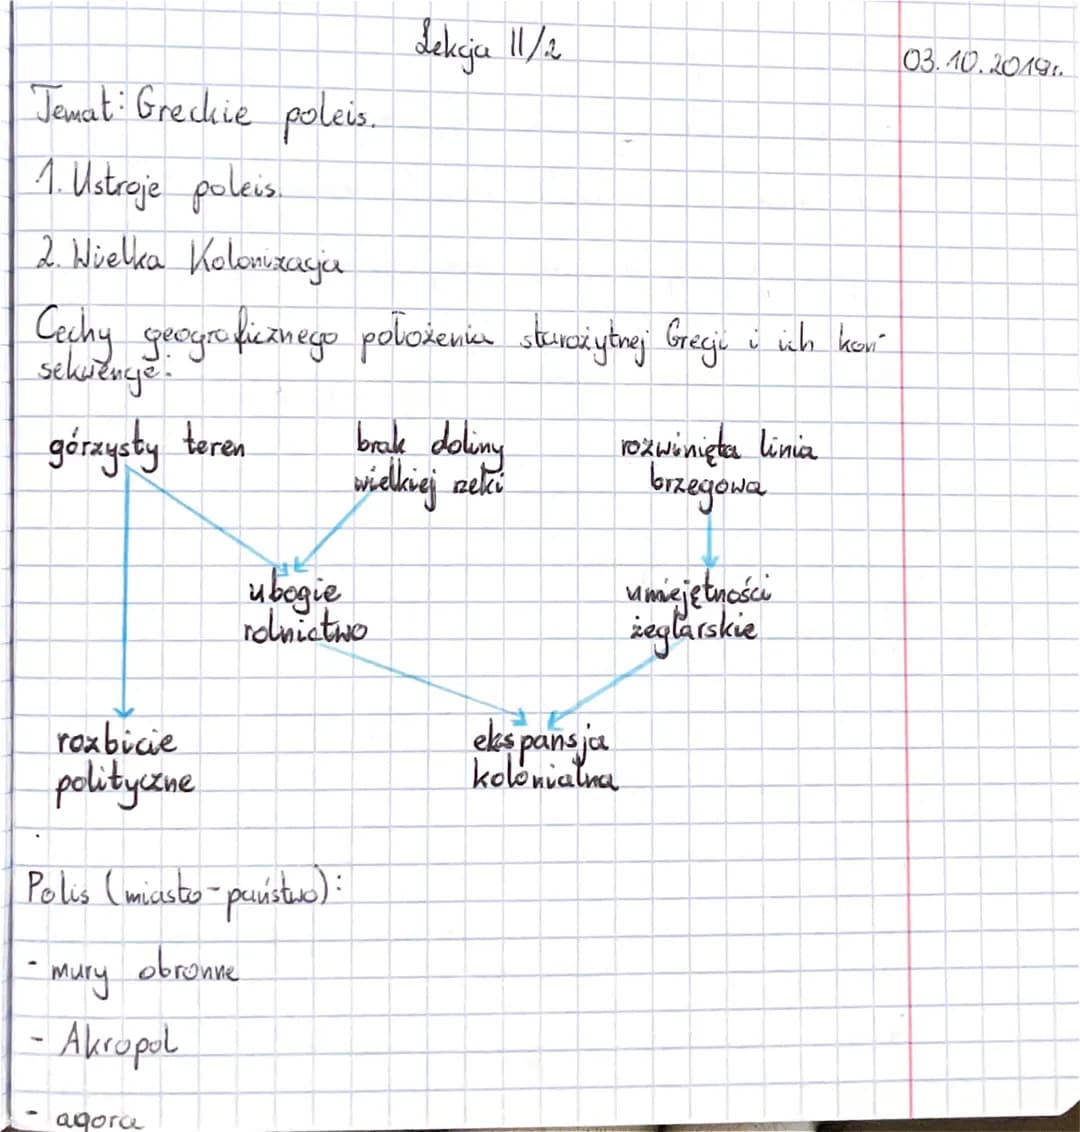 Lekcja 11/2
03.10.2019r.
Temat: Greckie poleis.
1. Ustroje poleis.
2. Wielka Kolonizacja
Cechy geograficznego położenia starożytnej Grecji i ich kon-
sekwencje:
górzysty teren
brak doliny
wielkiej rzeki
rozwinięta linia
brzegowa
ubogie
rolnictwo
umiejętności
żeglarskie
rozbicie
polityczne
ekspansja
kolonialna
Polis (miasto-państwo):
- mury obronne
- Akropol
- agora